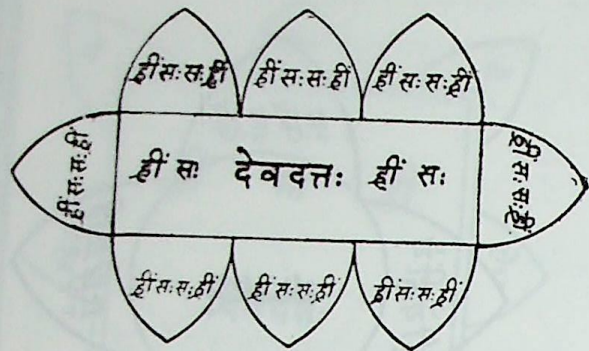 ह्रीं सः सः ह्रीं
ह्रीं सः सः ह्रीं
ह्रीं सः सः ह्रीं
ह्रीं सः सः ह्रीं
ह्रीं सः देवदत्तः ह्रीं सः
ह्रीं सः सः ह्रीं
ह्रीं सः सः ह्रीं
ह्रीं सः सः ह्रीं
ह्रीं सः सः ह्रीं